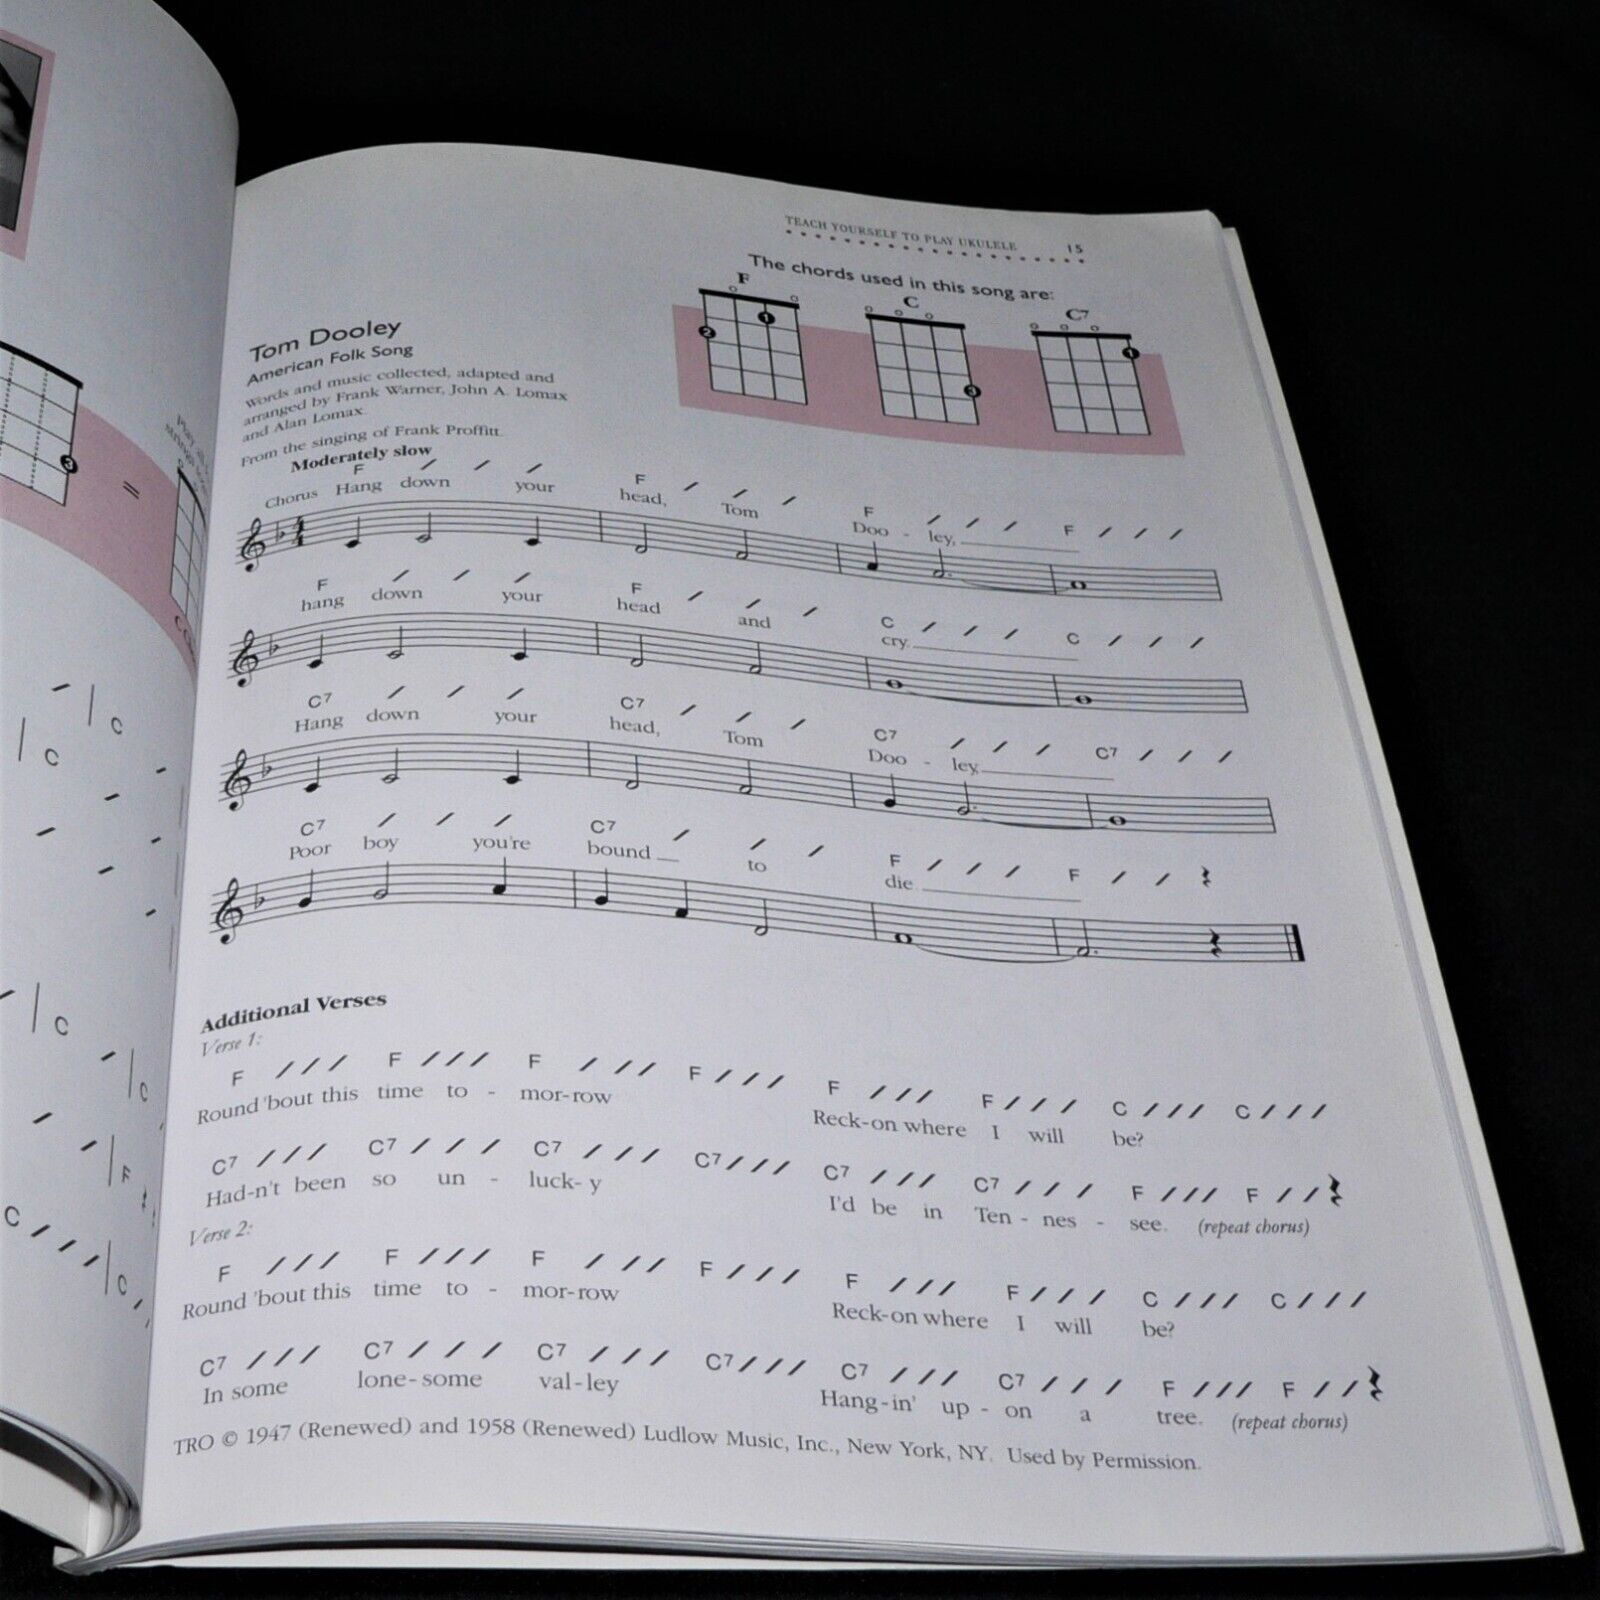 TEACH YOURSELF TO PLAY UKULELE 15
The chords used in this song are:
F C C7
2 1 3 1
Tom Dooley
American Folk Song
Words and music collected, adapted and
arranged by Frank Warner, John A. Lomax
and Alan Lomax.
From the singing of Frank Proffitt.
Moderately slow
F F F F
Chorus Hang down your head, Tom Doo - ley,
F F C C
hang down your head and cry.
C7 C7 C7 C7
Hang down your head, Tom Doo - ley,
C7 C7 F F
Poor boy you're bound to die.
Additional Verses
Verse 1:
F / / / F / / / F / / / F / / / F / / / F / / / C / / / C / / /
Round 'bout this time to - mor-row Reck-on where I will be?
C7 / / / C7 / / / C7 / / / C7 / / / C7 / / / C7 / / / F / / / F / /
Had-n't been so un - luck- y I'd be in Ten - nes - see. (repeat chorus)
Verse 2:
F / / / F / / / F / / / F / / / F / / / F / / / C / / / C / / /
Round 'bout this time to - mor-row Reck-on where I will be?
C7 / / / C7 / / / C7 / / / C7 / / / C7 / / / C7 / / / F / / / F / /
In some lone-some val-ley Hang-in' up - on a tree. (repeat chorus)
TRO © 1947 (Renewed) and 1958 (Renewed) Ludlow Music, Inc., New York, NY. Used by Permission.